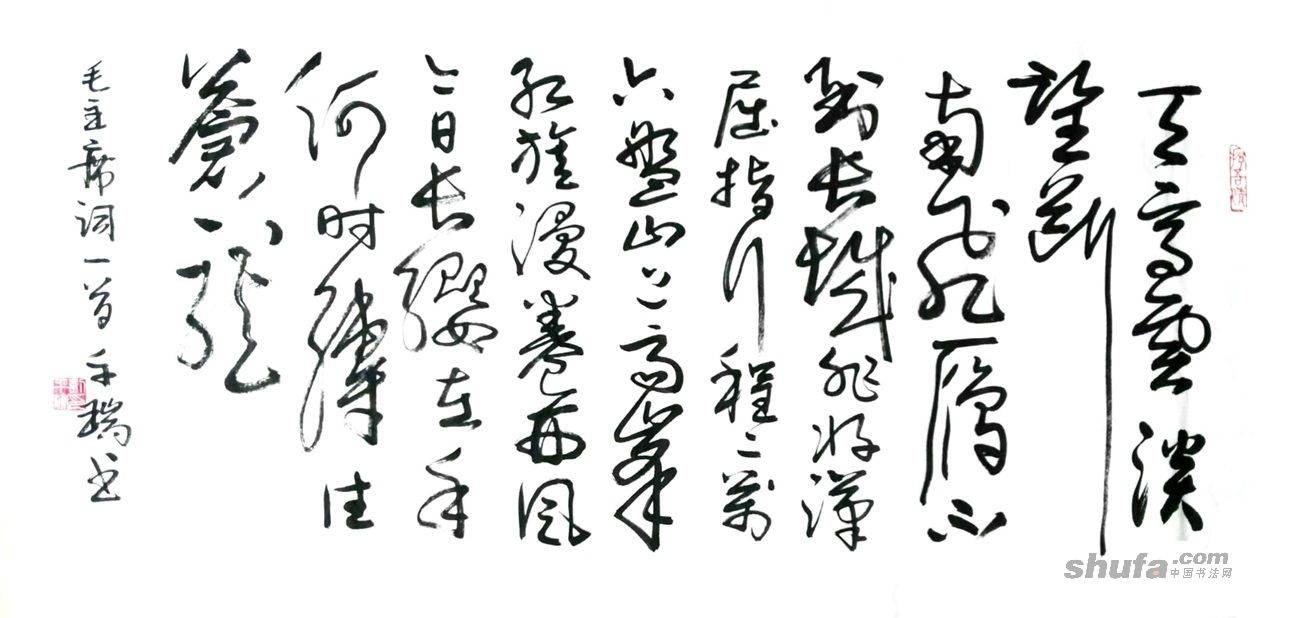 天高雲淡
望断
南飛雁不
到长城非好漢
屈指行程二萬
六盤山上高峰
红旗漫卷西风
今日长缨在手
何时缚住
蒼龍
毛主席词一首 千瑞书
shufa.com
中国书法网